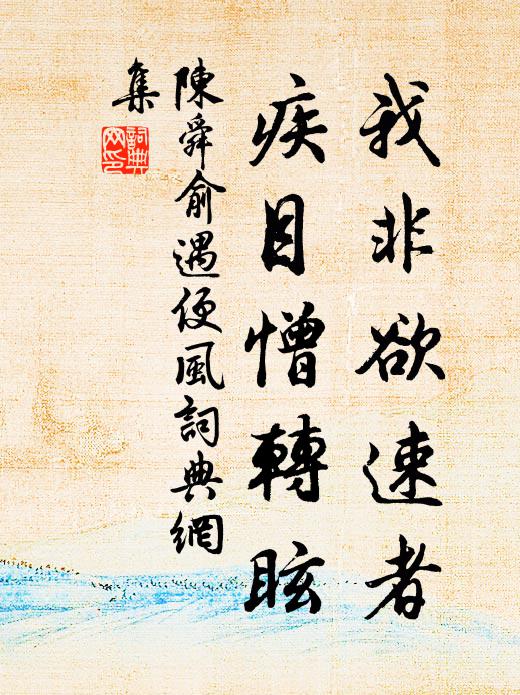 我非欲速者
疾目憎轉眩
陳舜俞遇便風詞典網
集
詞典網印